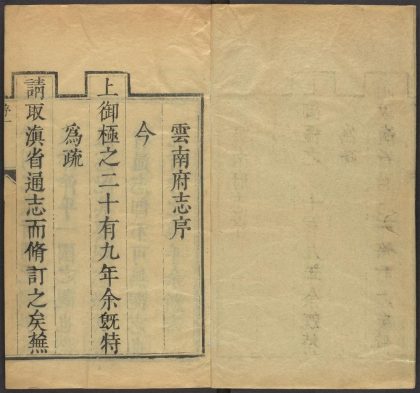 雲南府志序
今
上御極之二十有九年余既特
為疏
請取滇省通志而脩訂之矣蕪